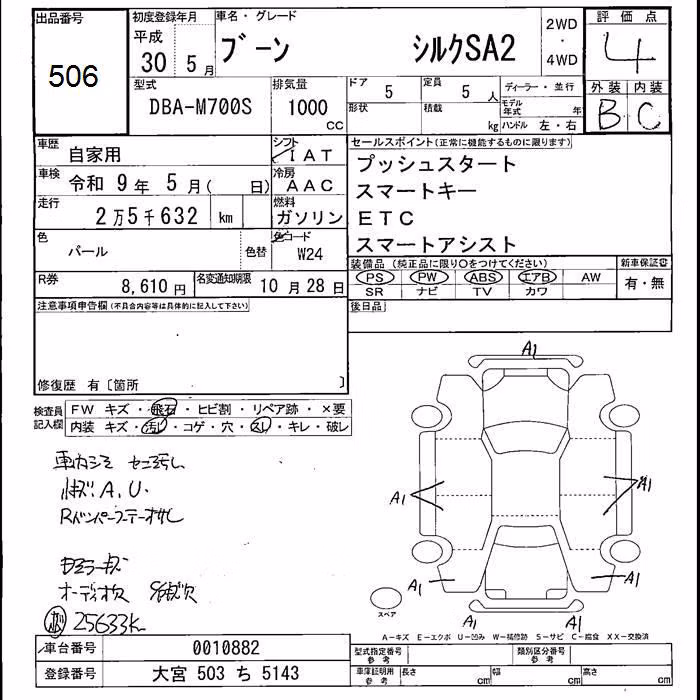 出品番号
506
初度登録年月
平成
30 5月
車名・グレード
ブーン シルクSA2
2WD
・
4WD
評価点
4
外装 内装
B C
型式
DBA-M700S
排気量
1000
CC
ドア
5
定員
5 人
形状
積載
kg
ディーラー・並行
モデル年式 年
ハンドル 左・右
車歴
自家用
シフト
IAT
車検
令和 9年 5月( 日)
冷房
AAC
走行
2万5千632 km
燃料
ガソリン
色
パール
色替
色コード
W24
R券
8,610円
名変通知期限
10月28日
セールスポイント(正常に機能するものに限ります)
プッシュスタート
スマートキー
ETC
スマートアシスト
装備品(純正品に限り○をつけてください)
PS PW ABS エアB AW
SR ナビ TV カワ
新車保証書
有・無
注意事項申告欄(不具合内容等は具体的に記入して下さい)
後日品
修復歴 有〔箇所 〕
検査員記入欄
FW キズ・飛石・ヒビ割・リペア跡・×要
内装 キズ・汚れ・コゲ・穴・スレ・キレ・破レ
A.U.
オーディオ欠
25633K
A1
A1
A1
A1
A1
A1
スペア
A-キズ E-エクボ U-凹み W-補修跡 S-サビ C-腐食 XX-交換済
車台番号
0010882
登録番号
大宮 503 ち 5143
型式指定番号
参考
類別区分番号
参考
車庫証明用
参考
長さ cm 幅 cm 高さ cm